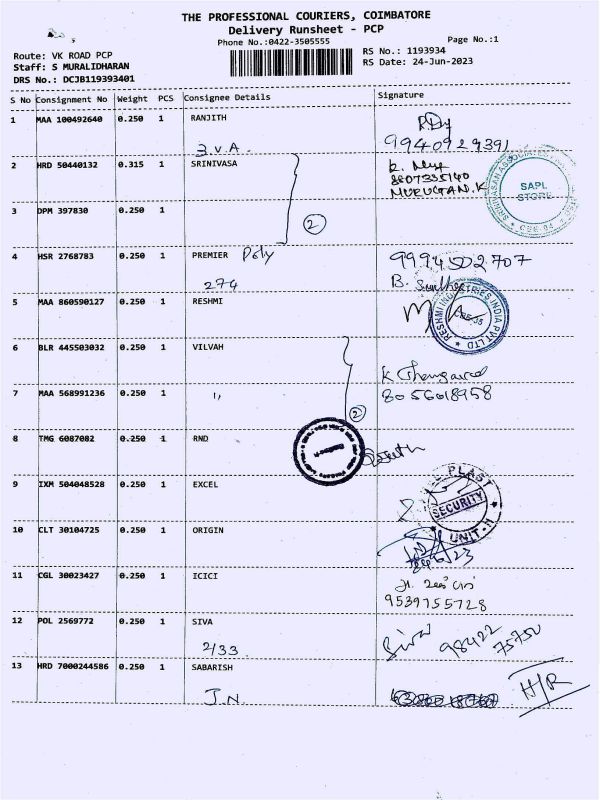 THE PROFESSIONAL COURIERS, COIMBATORE
Delivery Runsheet - PCP
Phone No.:0422-3505555 Page No.:1
Route: VK ROAD PCP RS No.: 1193934
Staff: S MURALIDHARAN RS Date: 24-Jun-2023
DRS No.: DCJB119393401
S No Consignment No Weight PCS Consignee Details Signature
1 MAA 100492640 0.250 1 RANJITH
3.V.A. 9940929391
2 HRD 50440132 0.315 1 SRINIVASA
8807335140
MURUGAN.K
SAPL
STORE
3 DPM 397830 0.250 1
2
4 HSR 2768783 0.250 1 PREMIER Poly 9994502707
274 B.
5 MAA 860590127 0.250 1 RESHMI
RESHMI INDUSTRIES INDIA PVT LTD
6 BLR 445503032 0.250 1 VILVAH
7 MAA 568991236 0.250 1 " 8056018958
2
8 TMG 6087082 0.250 1 RND
9 IXM 504048528 0.250 1 EXCEL
PLAST
SECURITY
UNIT-II
10 CLT 30104725 0.250 1 ORIGIN
11 CGL 30023427 0.250 1 ICICI
9539755728
12 POL 2569772 0.250 1 SIVA
2/33 Siva 98422
75750
13 HRD 7000244586 0.250 1 SABARISH
J.N. H/R